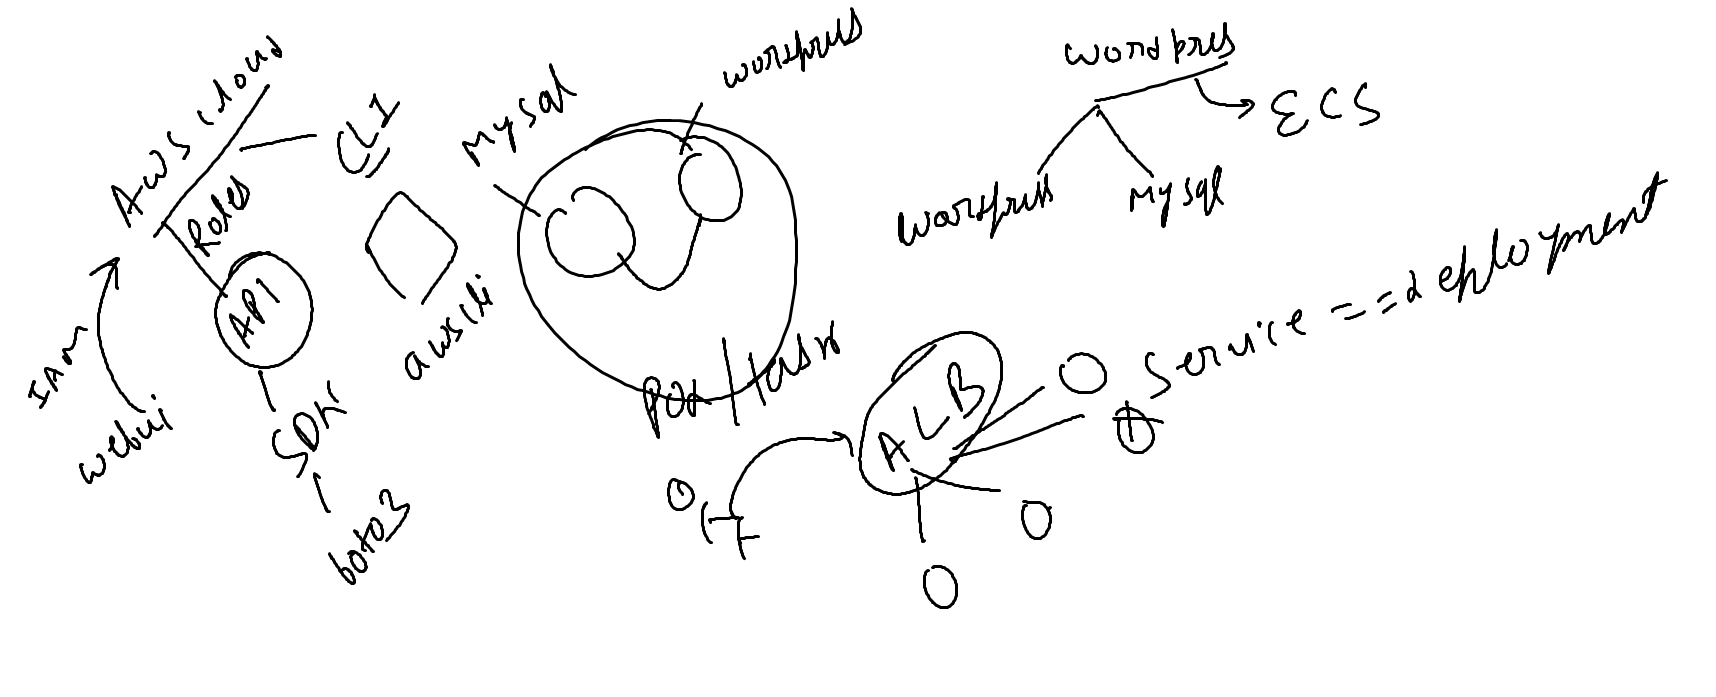 AWS cloud
Roles
CLI
API
SDK
boto3
IAM
webui
awscli
Mysql
worspres
Pod/task
wordpres
ECS
worspress
Mysql
ALB
Service == deployment